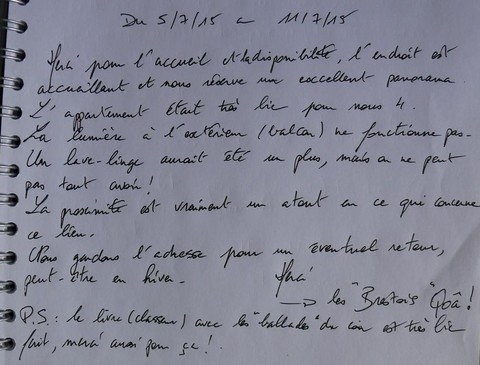 Du 5/7/15 au 11/7/15
Merci pour l'accueil et la disponibilité, l'endroit est
accueillant et nous réserve un excellent panorama.
L'appartement était très bien pour nous 4.
La lumière à l'extérieur (balcon) ne fonctionne pas.
Un lave-linge aurait été un plus, mais on ne peut
pas tout avoir !
La proximité est vraiment un atout en ce qui concerne
ce lieu.
Nous gardons l'adresse pour un éventuel retour,
peut-être en hiver. Merci
→ les "Brestois" !
P.S. : le livre (classeur) avec les "ballades" du coin est très bien
fait, merci aussi pour ça !